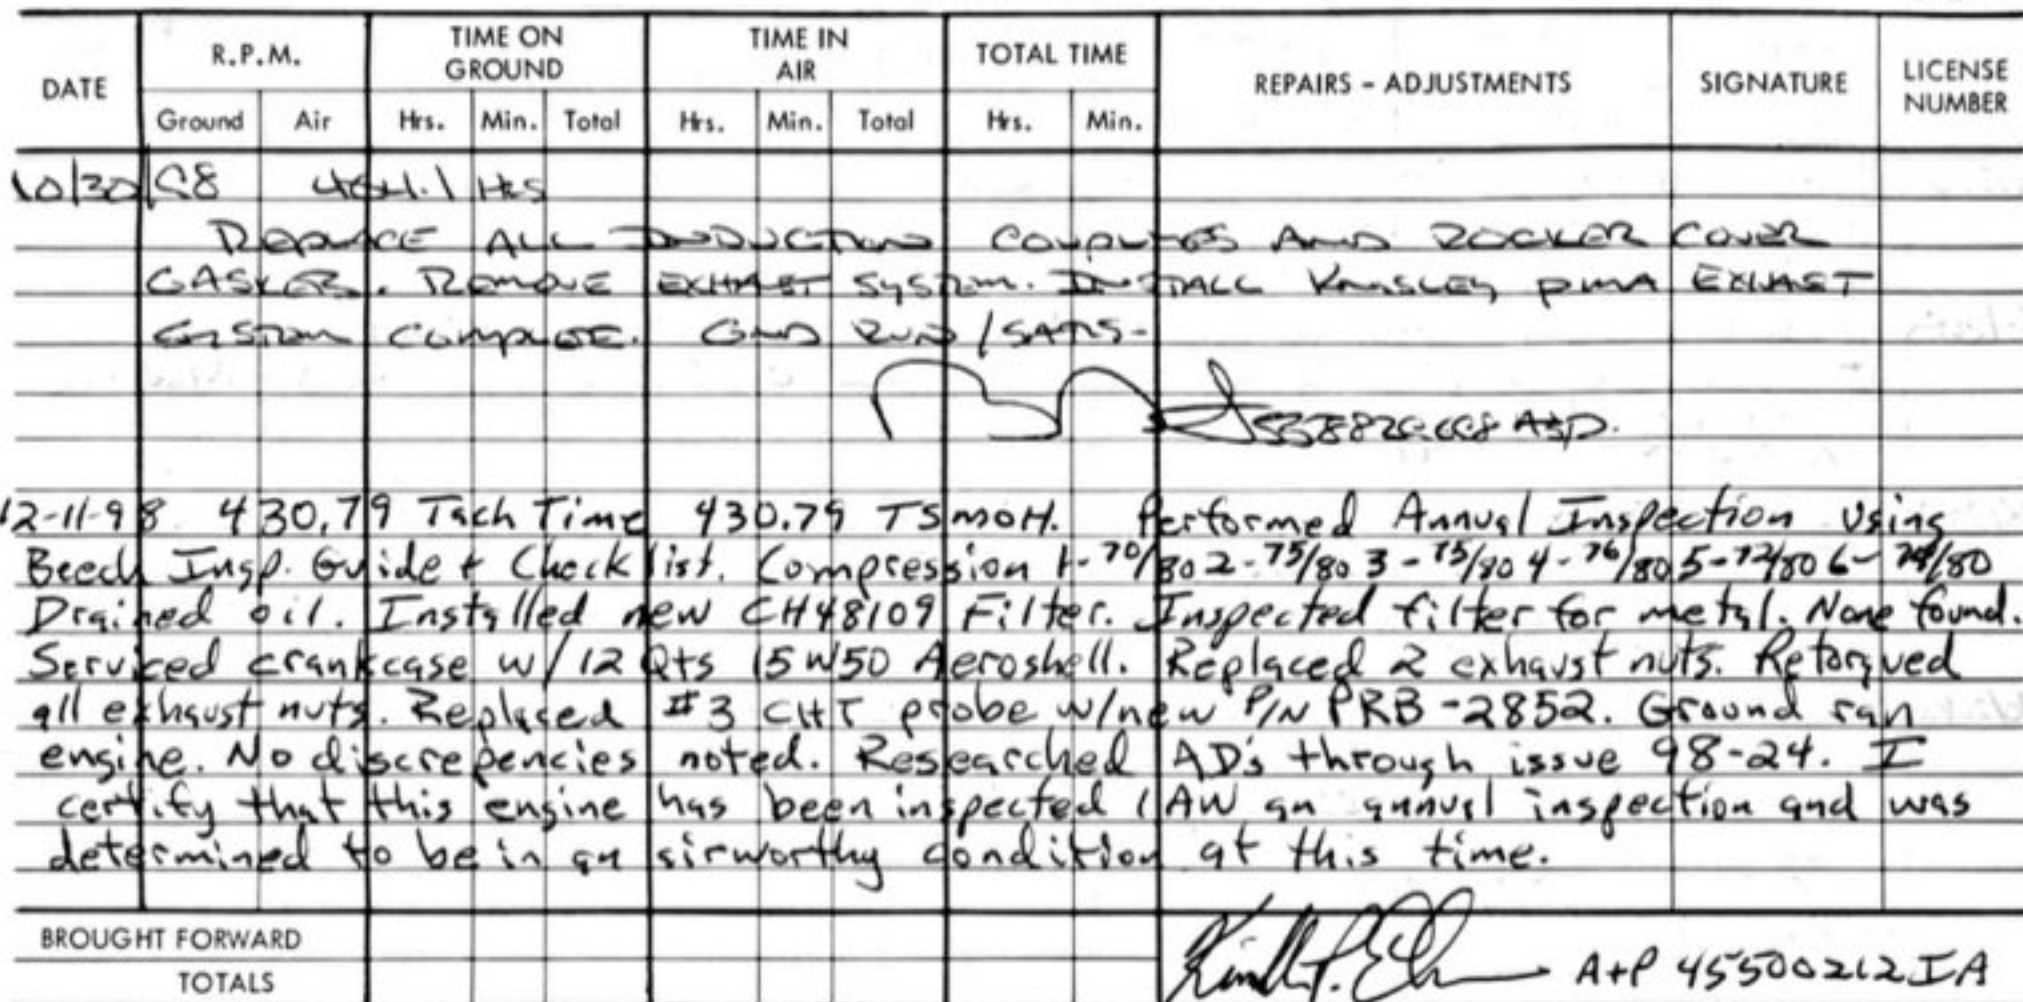 DATE R.P.M. TIME ON GROUND TIME IN AIR TOTAL TIME REPAIRS - ADJUSTMENTS SIGNATURE LICENSE NUMBER
Ground Air Hrs. Min. Total Hrs. Min. Total Hrs. Min.
10/30/98 Hrs
REPLACE ALL INDUCTION COUPLINGS AND ROCKER COVER
GASKETS. REMOVE EXHAUST SYSTEM. INSTALL PMA EXHAUST
SYSTEM COMPLETE. GND RUN/SATIS-
A&P.
12-11-98 430.79 Tach Time 430.79 TSMOH. Performed Annual Inspection Using
Beech Insp. Guide + Check list. Compression 1-70/80 2-75/80 3-75/80 4-76/80 5-72/80 6-/80
Drained oil. Installed new CH48109 Filter. Inspected filter for metal. None found.
Serviced crankcase w/12 Qts 15W50 Aeroshell. Replaced 2 exhaust nuts. Retorqued
all exhaust nuts. Replaced #3 CHT probe w/new P/N PRB-2852. Ground ran
engine. No discrepencies noted. Researched AD's through issue 98-24. I
certify that this engine has been inspected IAW an annual inspection and was
determined to be in an airworthy condition at this time.
BROUGHT FORWARD
TOTALS
A+P 45500212IA